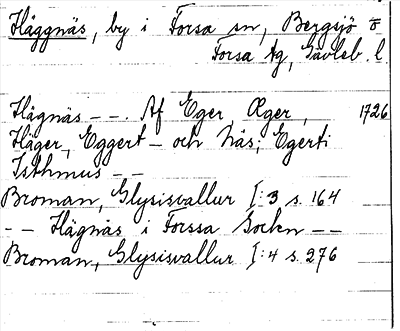 Häggnäs, by i Forsa sn, Bergsjö o
Forsa tg, Gävleb. l
Hägnäs – –. Af Eger, Æger, 1726
Häger, Eggert – och Näs; Egerti
Isthmus – –
Broman, Glysisvallur I:3 s. 164
– – Hägnäs i Forssa Sockn – –
Broman, Glysisvallur I:4 s. 276